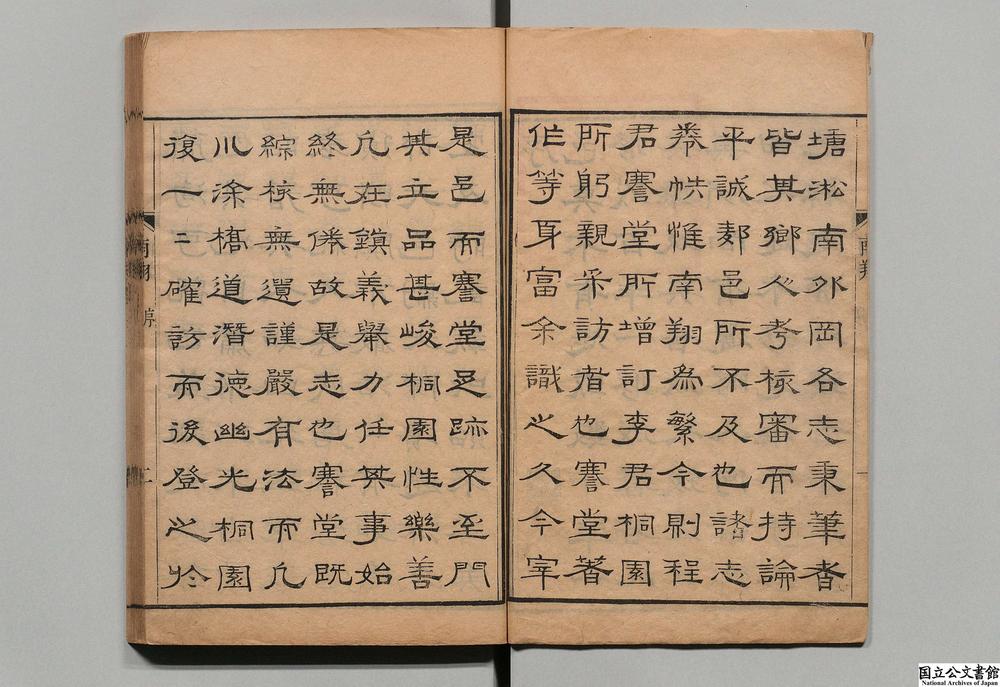 塘淞南外岡各志秉筆者
皆其鄉人考核審而持論
平誠郏邑所不及也諸志
卷帙惟南翔為繁今則程
君謇堂所增訂李君桐園
所躬親采訪者也謇堂著
作等身富余識之久今宰
是邑而謇堂足跡不至門
其立品甚峻桐園性樂善
凡在鎮義舉力任其事始
終無倦故是志也謇堂既
綜核無遺謹嚴有法而凡
川涂橋道潛德幽光桐園
復一二確訪而後登之於
南翔
南翔 序
二
国立公文書館
National Archives of Japan